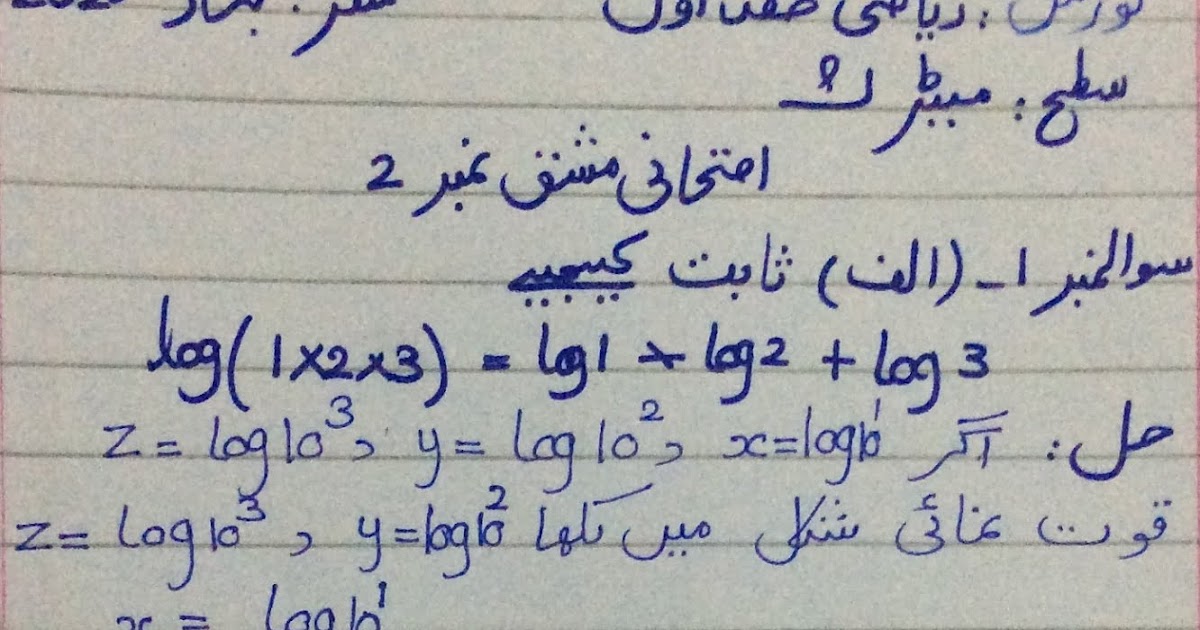 کورس: ریاضی حصہ اول سمسٹر: بہار
سطح: میٹرک
امتحانی مشق نمبر 2
سوال نمبر 1 - (الف) ثابت کیجیے
log(1×2×3) = log1 + log2 + log3
حل: اگر x=log10¹ , y=log10² , z=log10³
قوت نمائی شکل میں لکھا y=log10² , z=log10³
x = log10¹